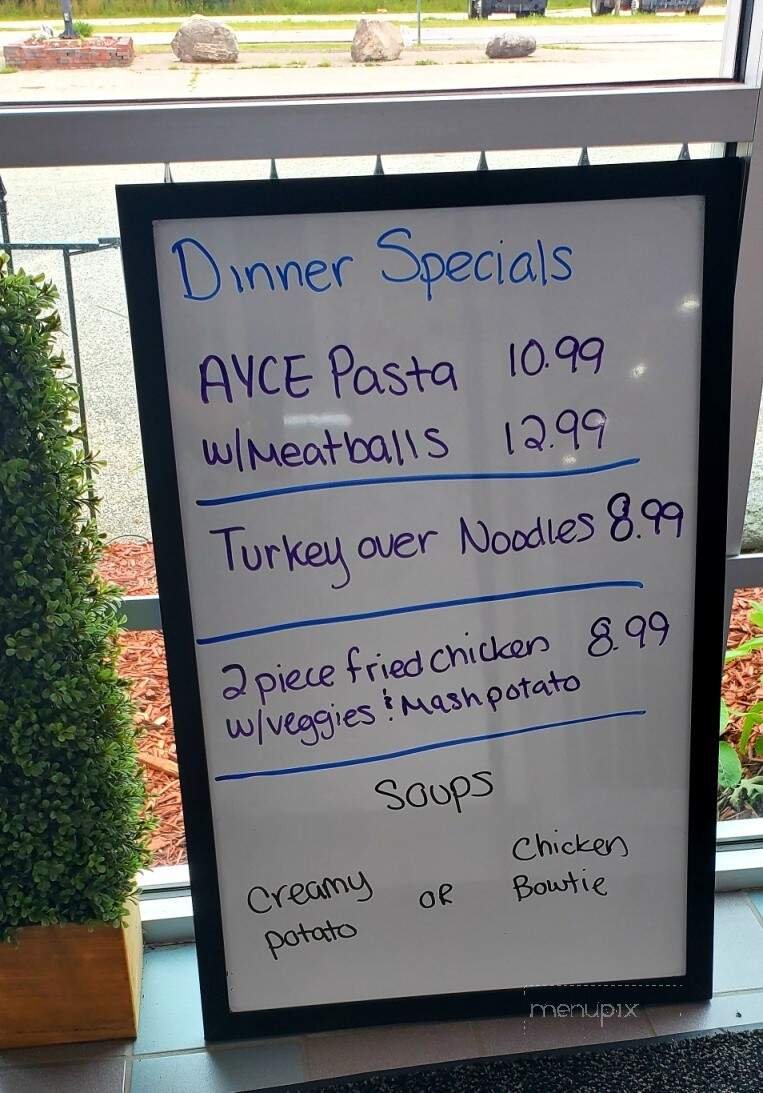 Dinner Specials
AYCE Pasta 10.99
w/Meatballs 12.99
Turkey over Noodles 8.99
2 piece fried chicken 8.99
w/veggies & Mash potato
Soups
Creamy potato OR Chicken Bowtie
menupix